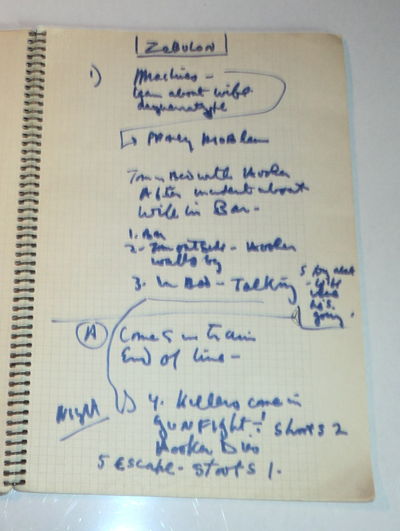 ZEBULON
1) Machies -
about wife
daguerrotype
Problem
In Bed with Hooker
After incident about
wife in Bar -
1. Bar
2 - outside - Hooker
walks by
3. In Bed - Talking
5
wife
where
he's
going!
A Comes in train
End of line -
Night
4. Killers come in
GUNFIGHT - ! Shoots 2
Hooker Dies
5 Escape - Shoots 1.